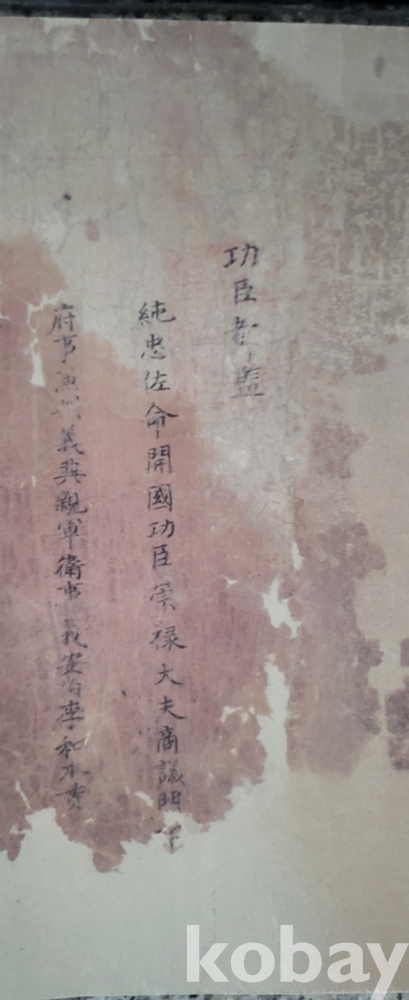 功臣都監
純忠佐命開國功臣崇祿大夫商議門下
府事 義興親軍衛 義安伯李和 本貫
kobay